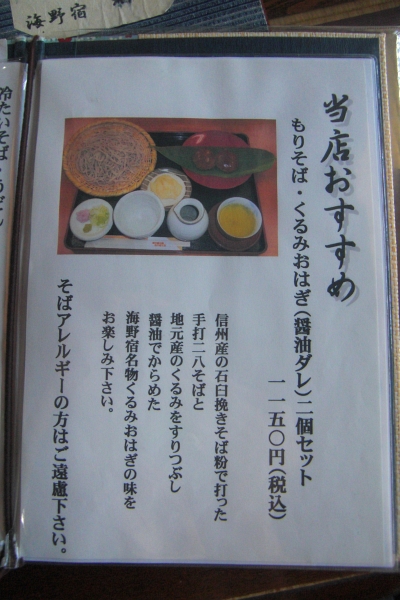 海野宿
当店おすすめ
もりそば・くるみおはぎ(醤油ダレ)二個セット
一一五〇円(税込)
信州産の石臼挽きそば粉で打った
手打二八そばと
地元産のくるみをすりつぶし
醤油でからめた
海野宿名物くるみおはぎの味を
お楽しみ下さい。
そばアレルギーの方はご遠慮下さい。
冷たいそば・うどん